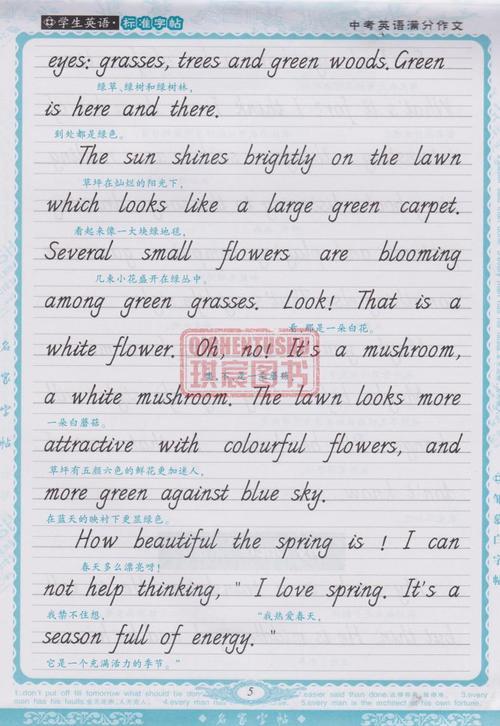 中学生英语·标准字帖
中考英语满分作文
eyes: grasses, trees and green woods. Green
绿草、绿树和绿树林,
is here and there.
到处都是绿色。
The sun shines brightly on the lawn
草坪在灿烂的阳光下,
which looks like a large green carpet.
看起来像一大块绿地毯,
Several small flowers are blooming
几朵小花盛开在绿丛中,
among green grasses. Look! That is a
看,那是一朵白花。
white flower. Oh, no! It's a mushroom,
噢,不,是一朵蘑菇,
QICHENTUSHU
琪宸图书
a white mushroom. The lawn looks more
一朵白蘑菇。
attractive with colourful flowers, and
草坪有五颜六色的鲜花更加迷人,
more green against blue sky.
在蓝天的映衬下更显绿色。
How beautiful the spring is ! I can
春天多么漂亮呀!
not help thinking, " I love spring. It's a
我禁不住想, "我热爱春天,
season full of energy. "
它是一个充满活力的季节。"
5
1.don't put off till tomorrow what should be don
easier said than done.
has his faults
4.every man
5.every man is the architect of his own fortune.
名家字帖